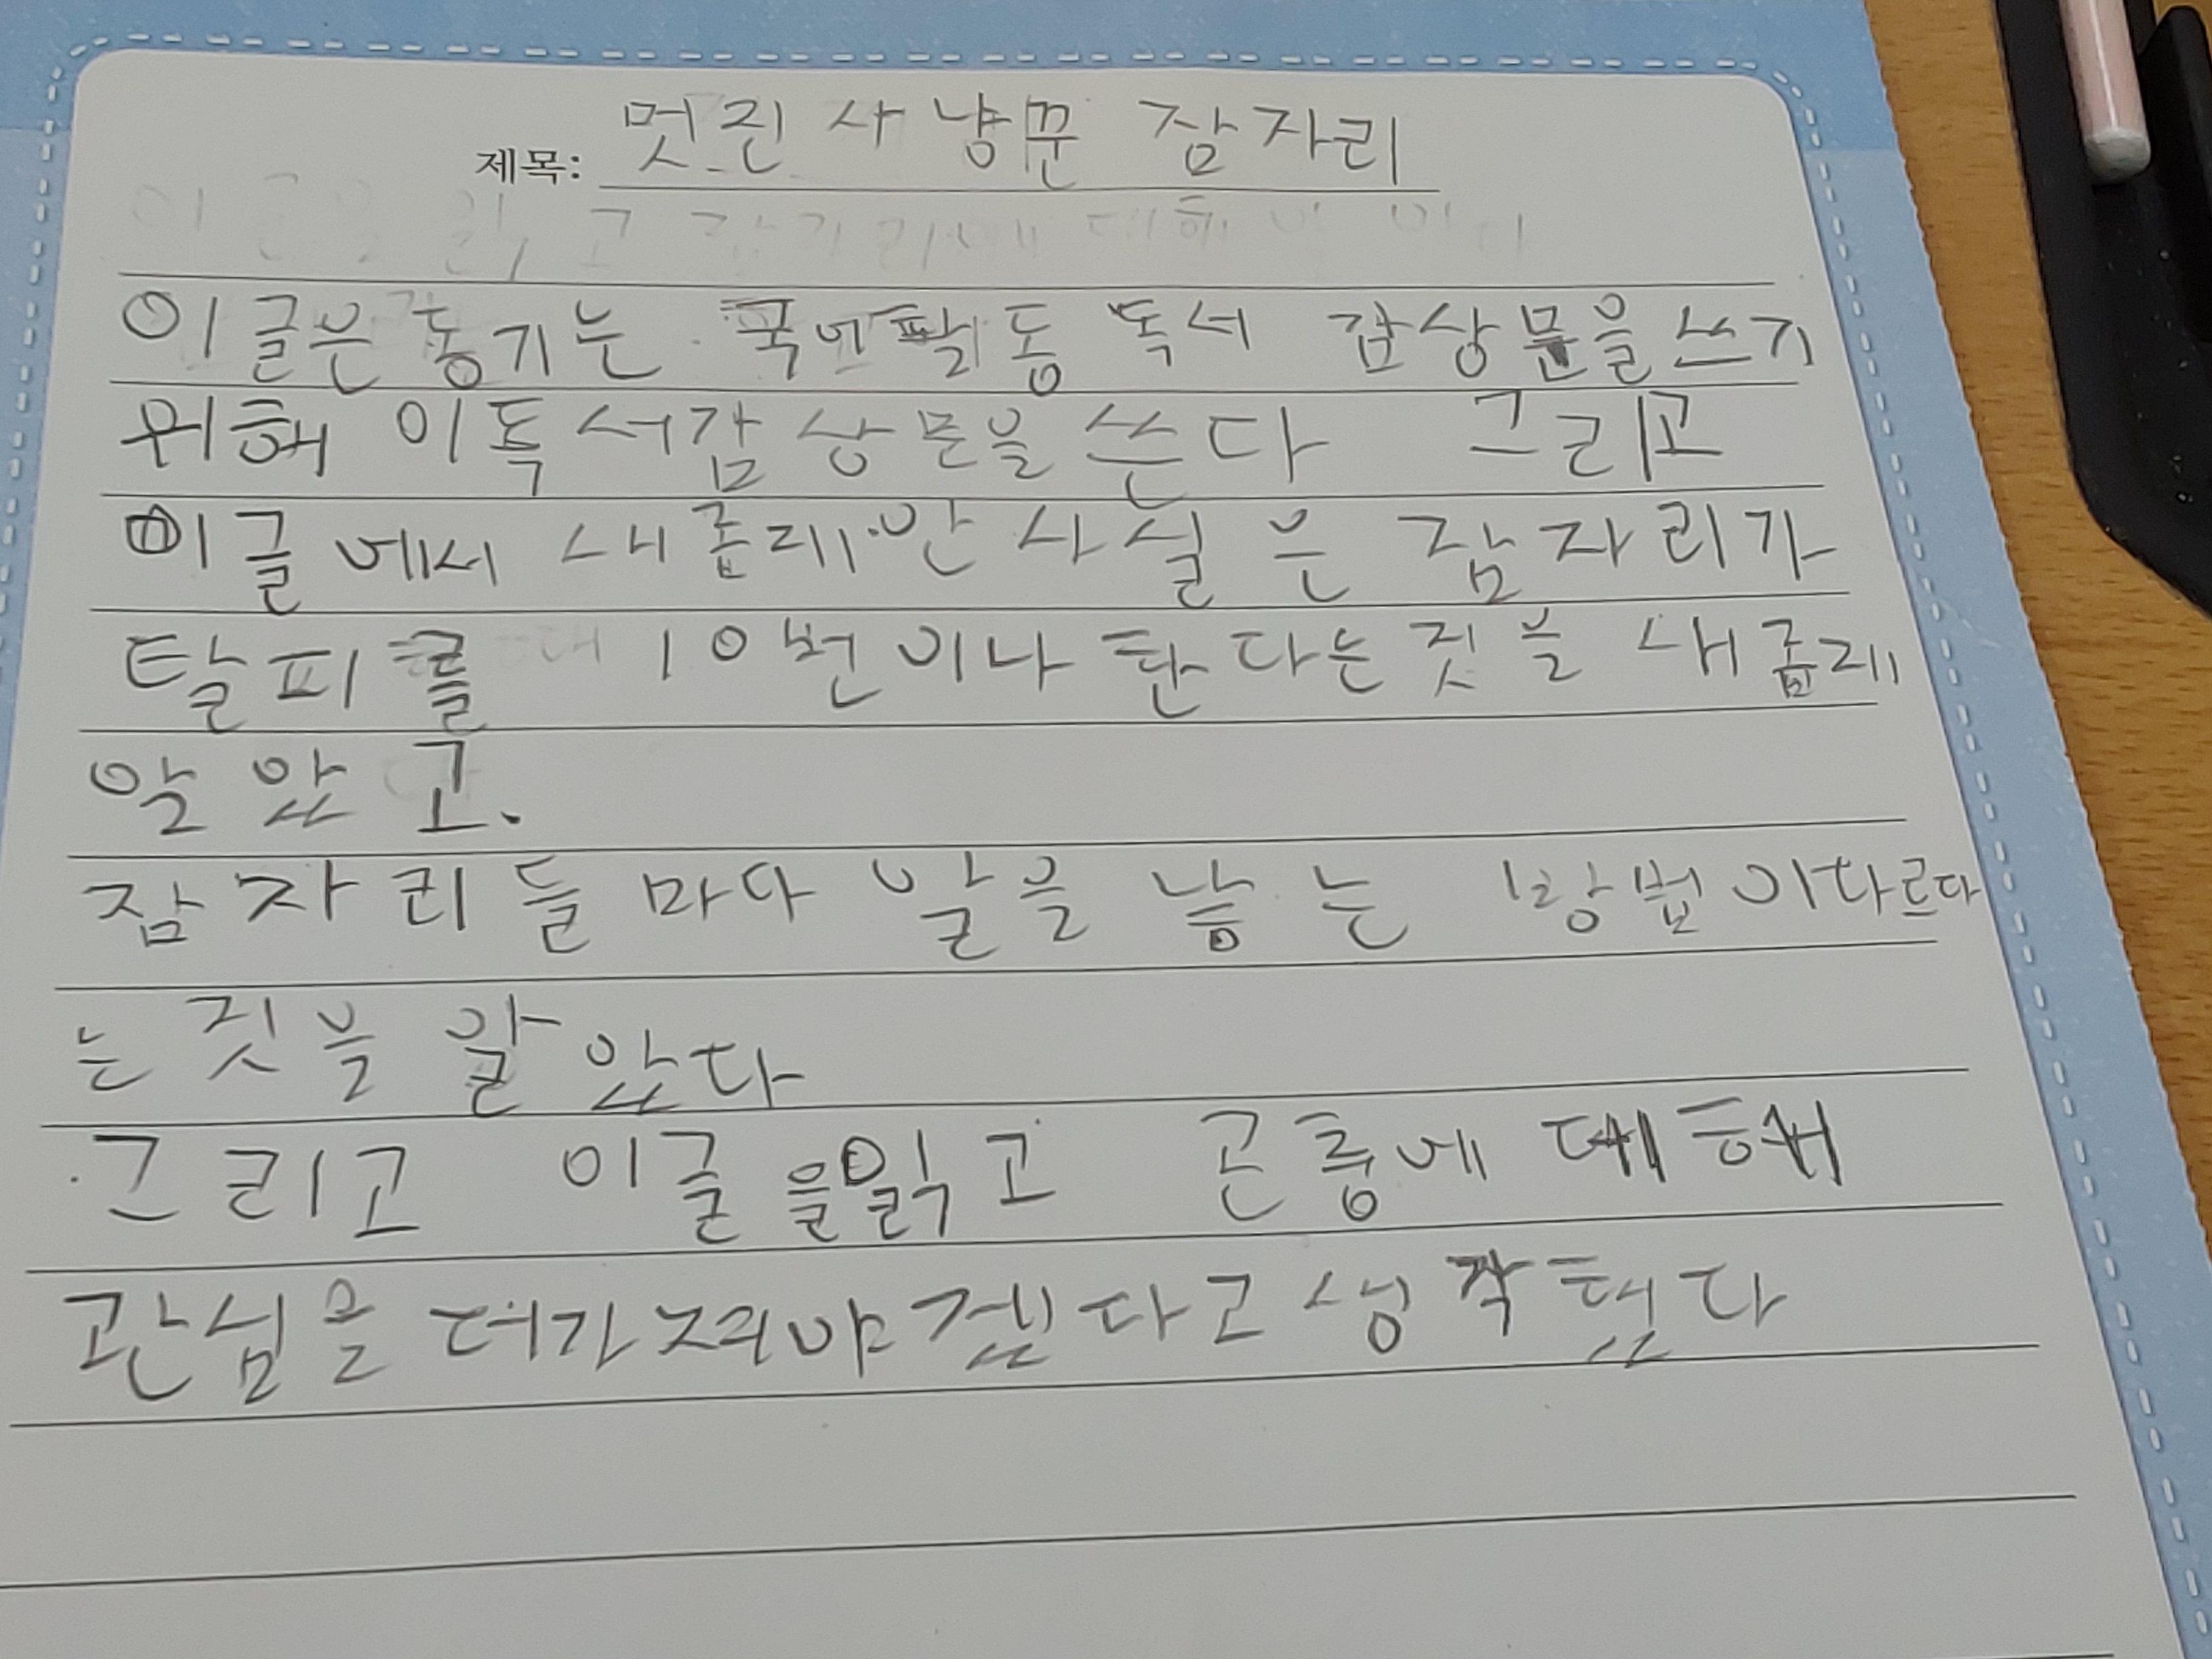 제목: 멋진 사냥꾼 잠자리
이글은 동기는 독서 감상문을 쓰기
위해 이독서감상문을 쓴다 그리고
이글에서 새롭게 안 사실은 잠자리가
탈피를 10번이나 한다는것을 새롭게
알았고.
잠자리들마다 알을 낳는 방법이다르다
는것을 알았다
그리고 이글을읽고 곤충에 대해
관심을 더가져야겠다고생각했다